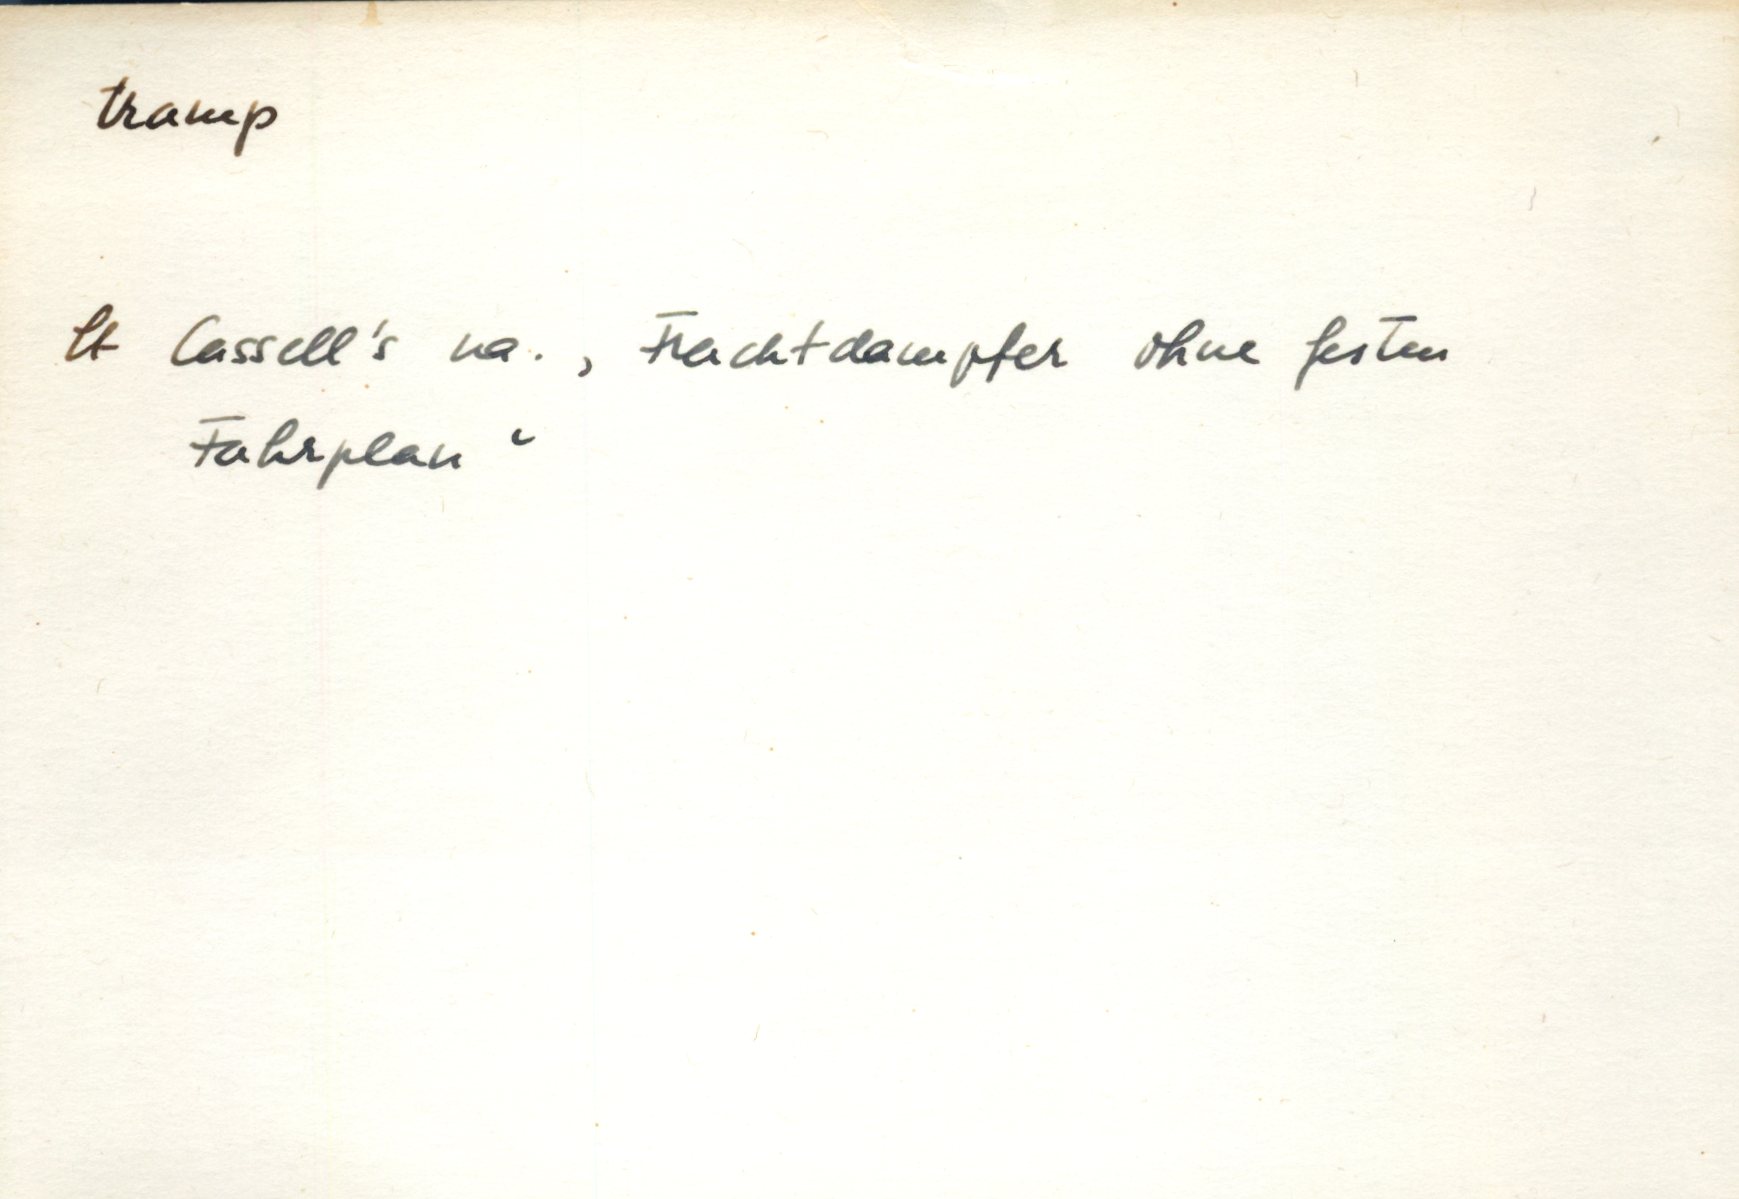 tramp
lt Cassell's na. ‚Frachtdampfer ohne festen
Fahrplan‘